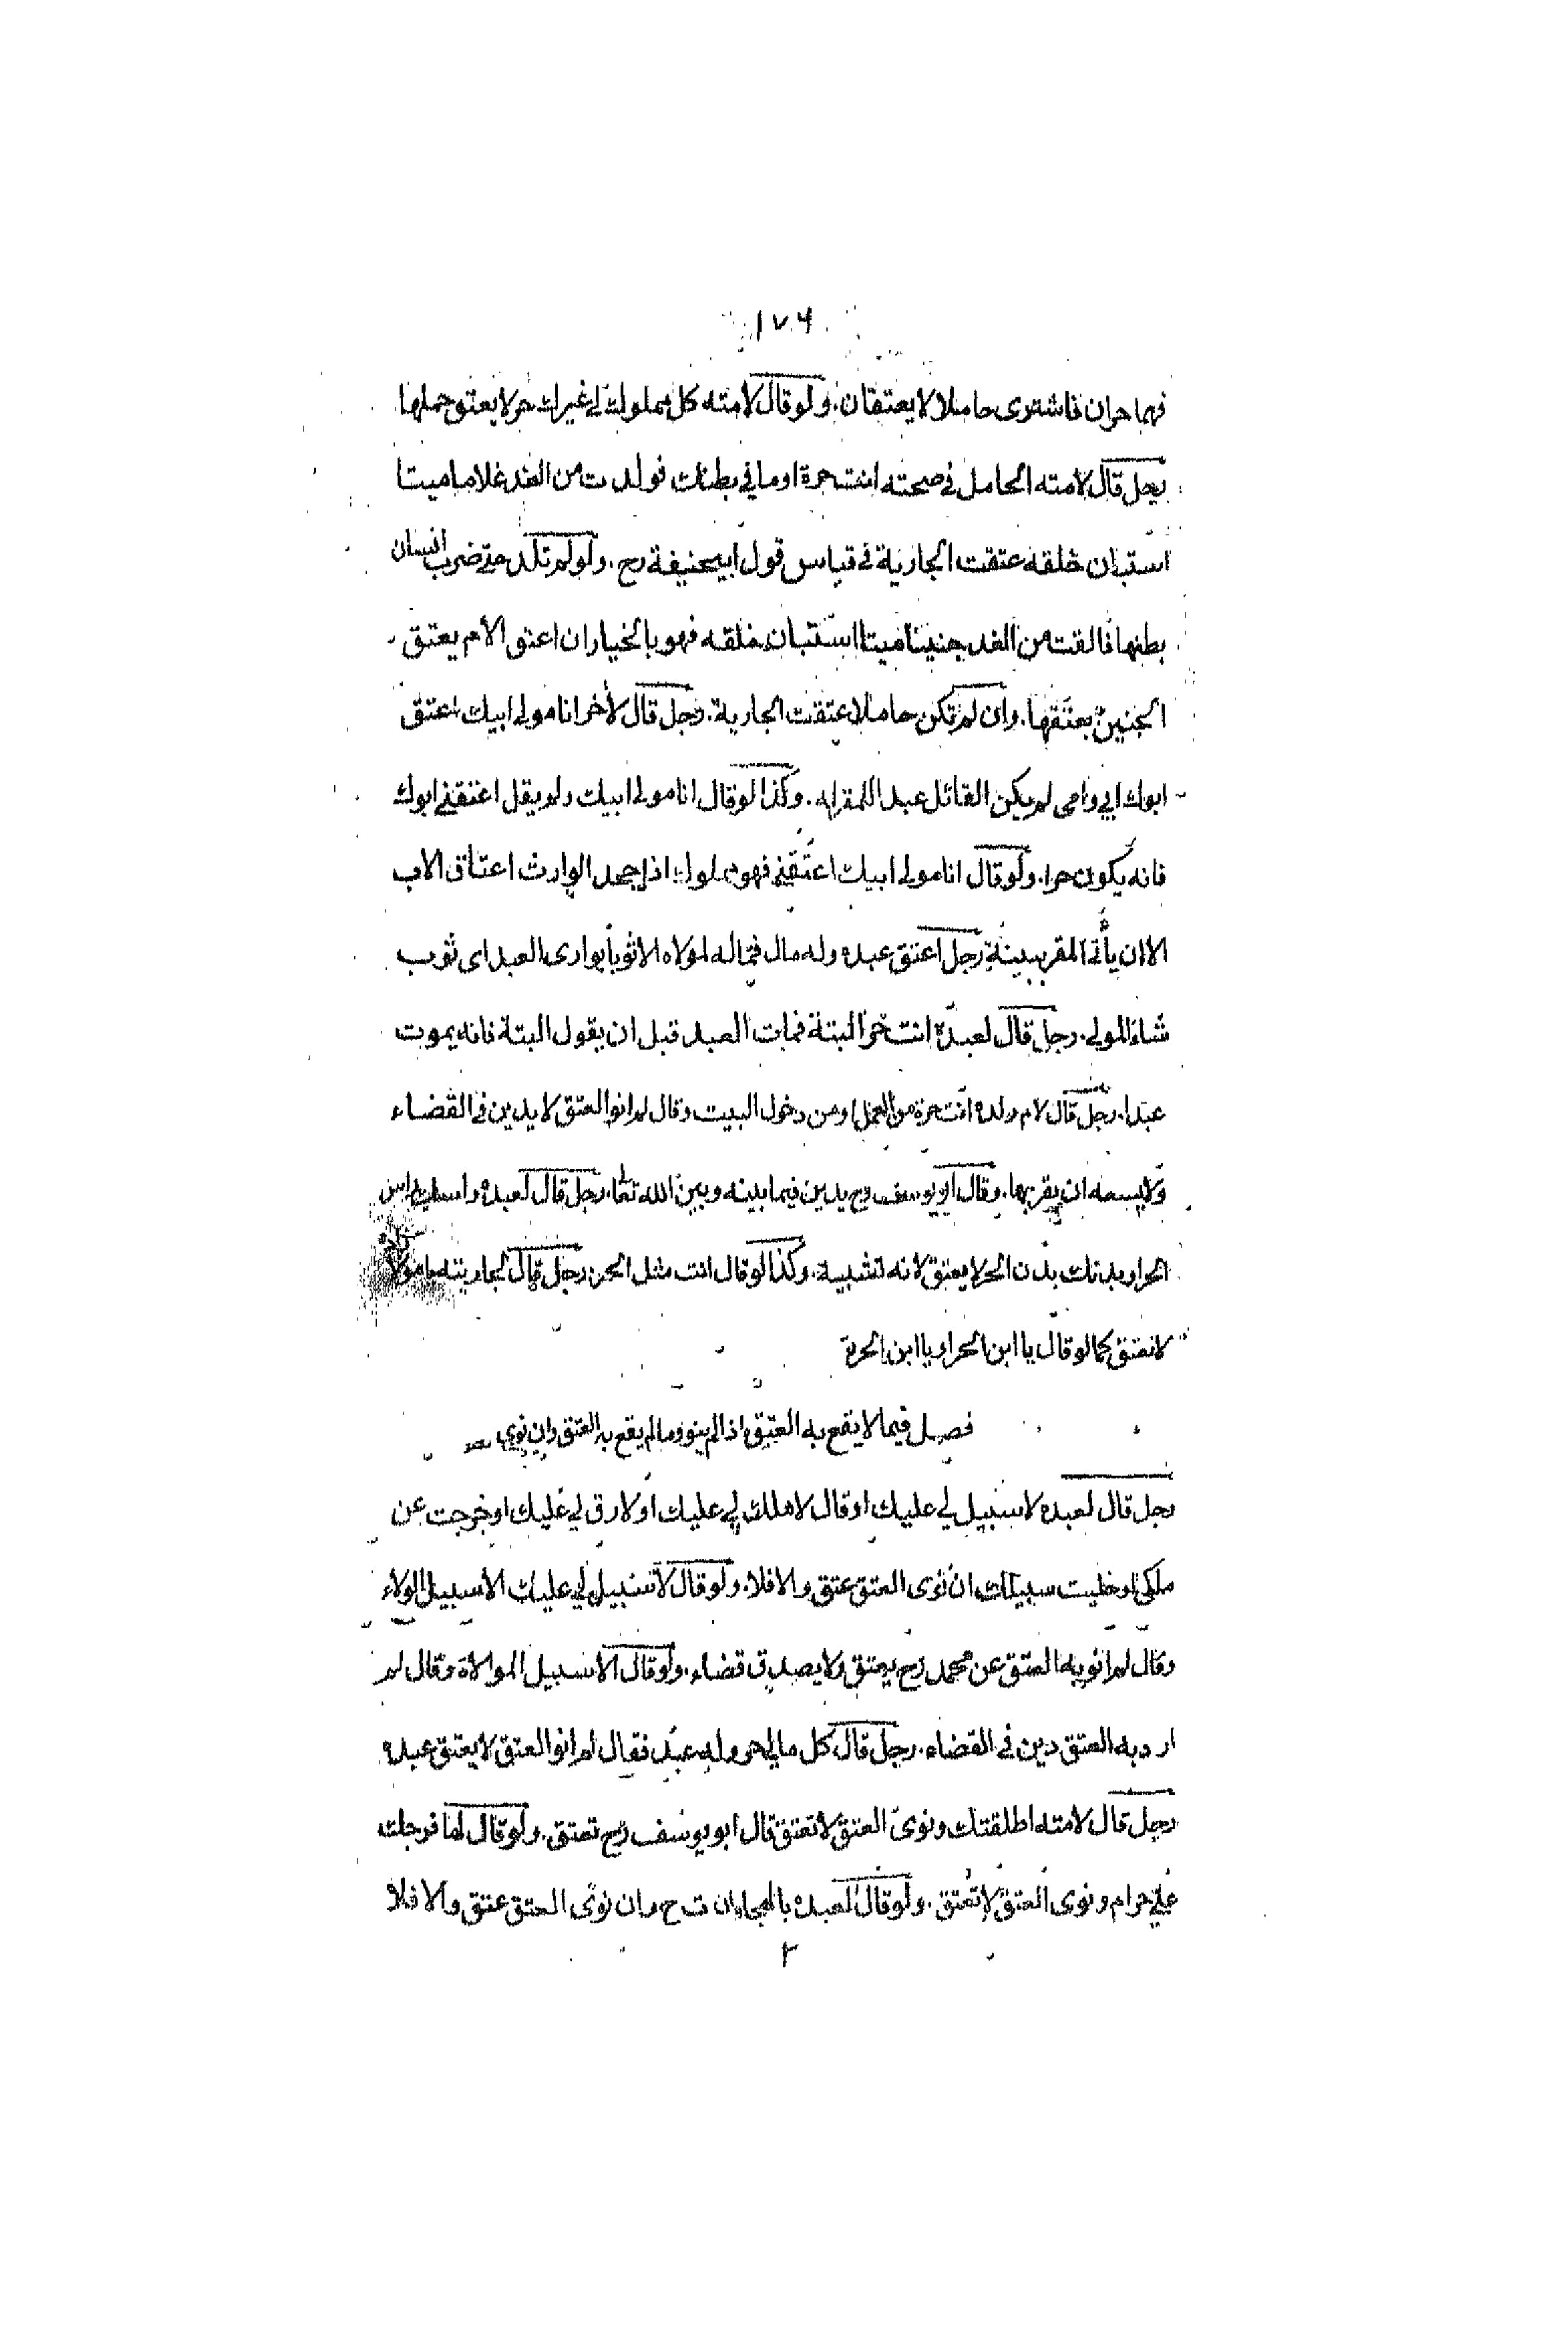 ١٧٦
فهما حران فاشترى حاملا لا يعتقان. ولو قال لامته كل مملوك لي غيرك حر لا يعتق حملها
رجل قال لامته الحامل في صحته انت حرة او ما في بطنك فولدت من الغد غلاما ميتا
استبان خلقه عتقت الجارية في قياس قول ابيحنيفة رح. ولو لم تلد حتى ضرب انسان
بطنها فالقت من الغد جنينا ميتا استبان خلقه فهو بالخيار ان اعتق الام يعتق
الجنين بعتقها. وان لم تكن حاملا عتقت الجارية. رجل قال لأخر انا مولى ابيك اعتق
ابوك ابي وامي لم يكن القائل عبدا للمقر له. وكذا لو قال انا مولى ابيك ولم يقل اعتقني ابوك
فانه يكون حرا. ولو قال انا مولى ابيك اعتقني فهو مملوك اذا جحد الوارث اعتاق الاب
الا ان يأتي المقر ببينة رجل اعتق عبده وله مال فماله لمولاه الا ثوبا يوارى العبد اى ثوب
شاء المولى. رجل قال لعبده انت حر البتة فمات العبد قبل ان يقول البتة فانه يموت
عبدا. رجل قال لام ولده انت حرة من العمل او من دخول البيت وقال لم انو العتق لا يدين في القضاء
ولا يسعه ان يقربها. وقال ابو يوسف رح يدين فيما بينه وبين الله تعا. رجل قال لعبده راسك راس
الحر او بدنك بدن الحر لا يعتق لانه تشبيه. وكذا لو قال انت مثل الحر. رجل قال لجاريته يا مولا
لا تعتق كما لو قال يا ابن الحر او يا ابن الحرة
فصل فيما لا يقع به العتق اذا لم ينو وما لم يقع به العتق وان نوى
رجل قال لعبده لا سبيل لي عليك او قال لا ملك لي عليك او لا رق لي عليك او خرجت عن
ملكي او خليت سبيلك ان نوى العتق عتق والا فلا. ولو قال لا سبيل لي عليك الا سبيل الولاء
وقال لم انو به العتق عن محمد رح يعتق ولا يصدق قضاء. ولو قال الا سبيل الموالاة وقال لم
ارد به العتق دين في القضاء. رجل قال كل مالي حر وله عبد فقال لم انو العتق لا يعتق عبده
رجل قال لامته اطلقتك ونوى العتق لا تعتق قال ابو يوسف رح تعتق. ولو قال لها فرجك
علي حرام ونوى العتق لا تعتق. ولو قال لعبده بالهجا ان ت ح ر ان نوى العتق عتق والا فلا
٢